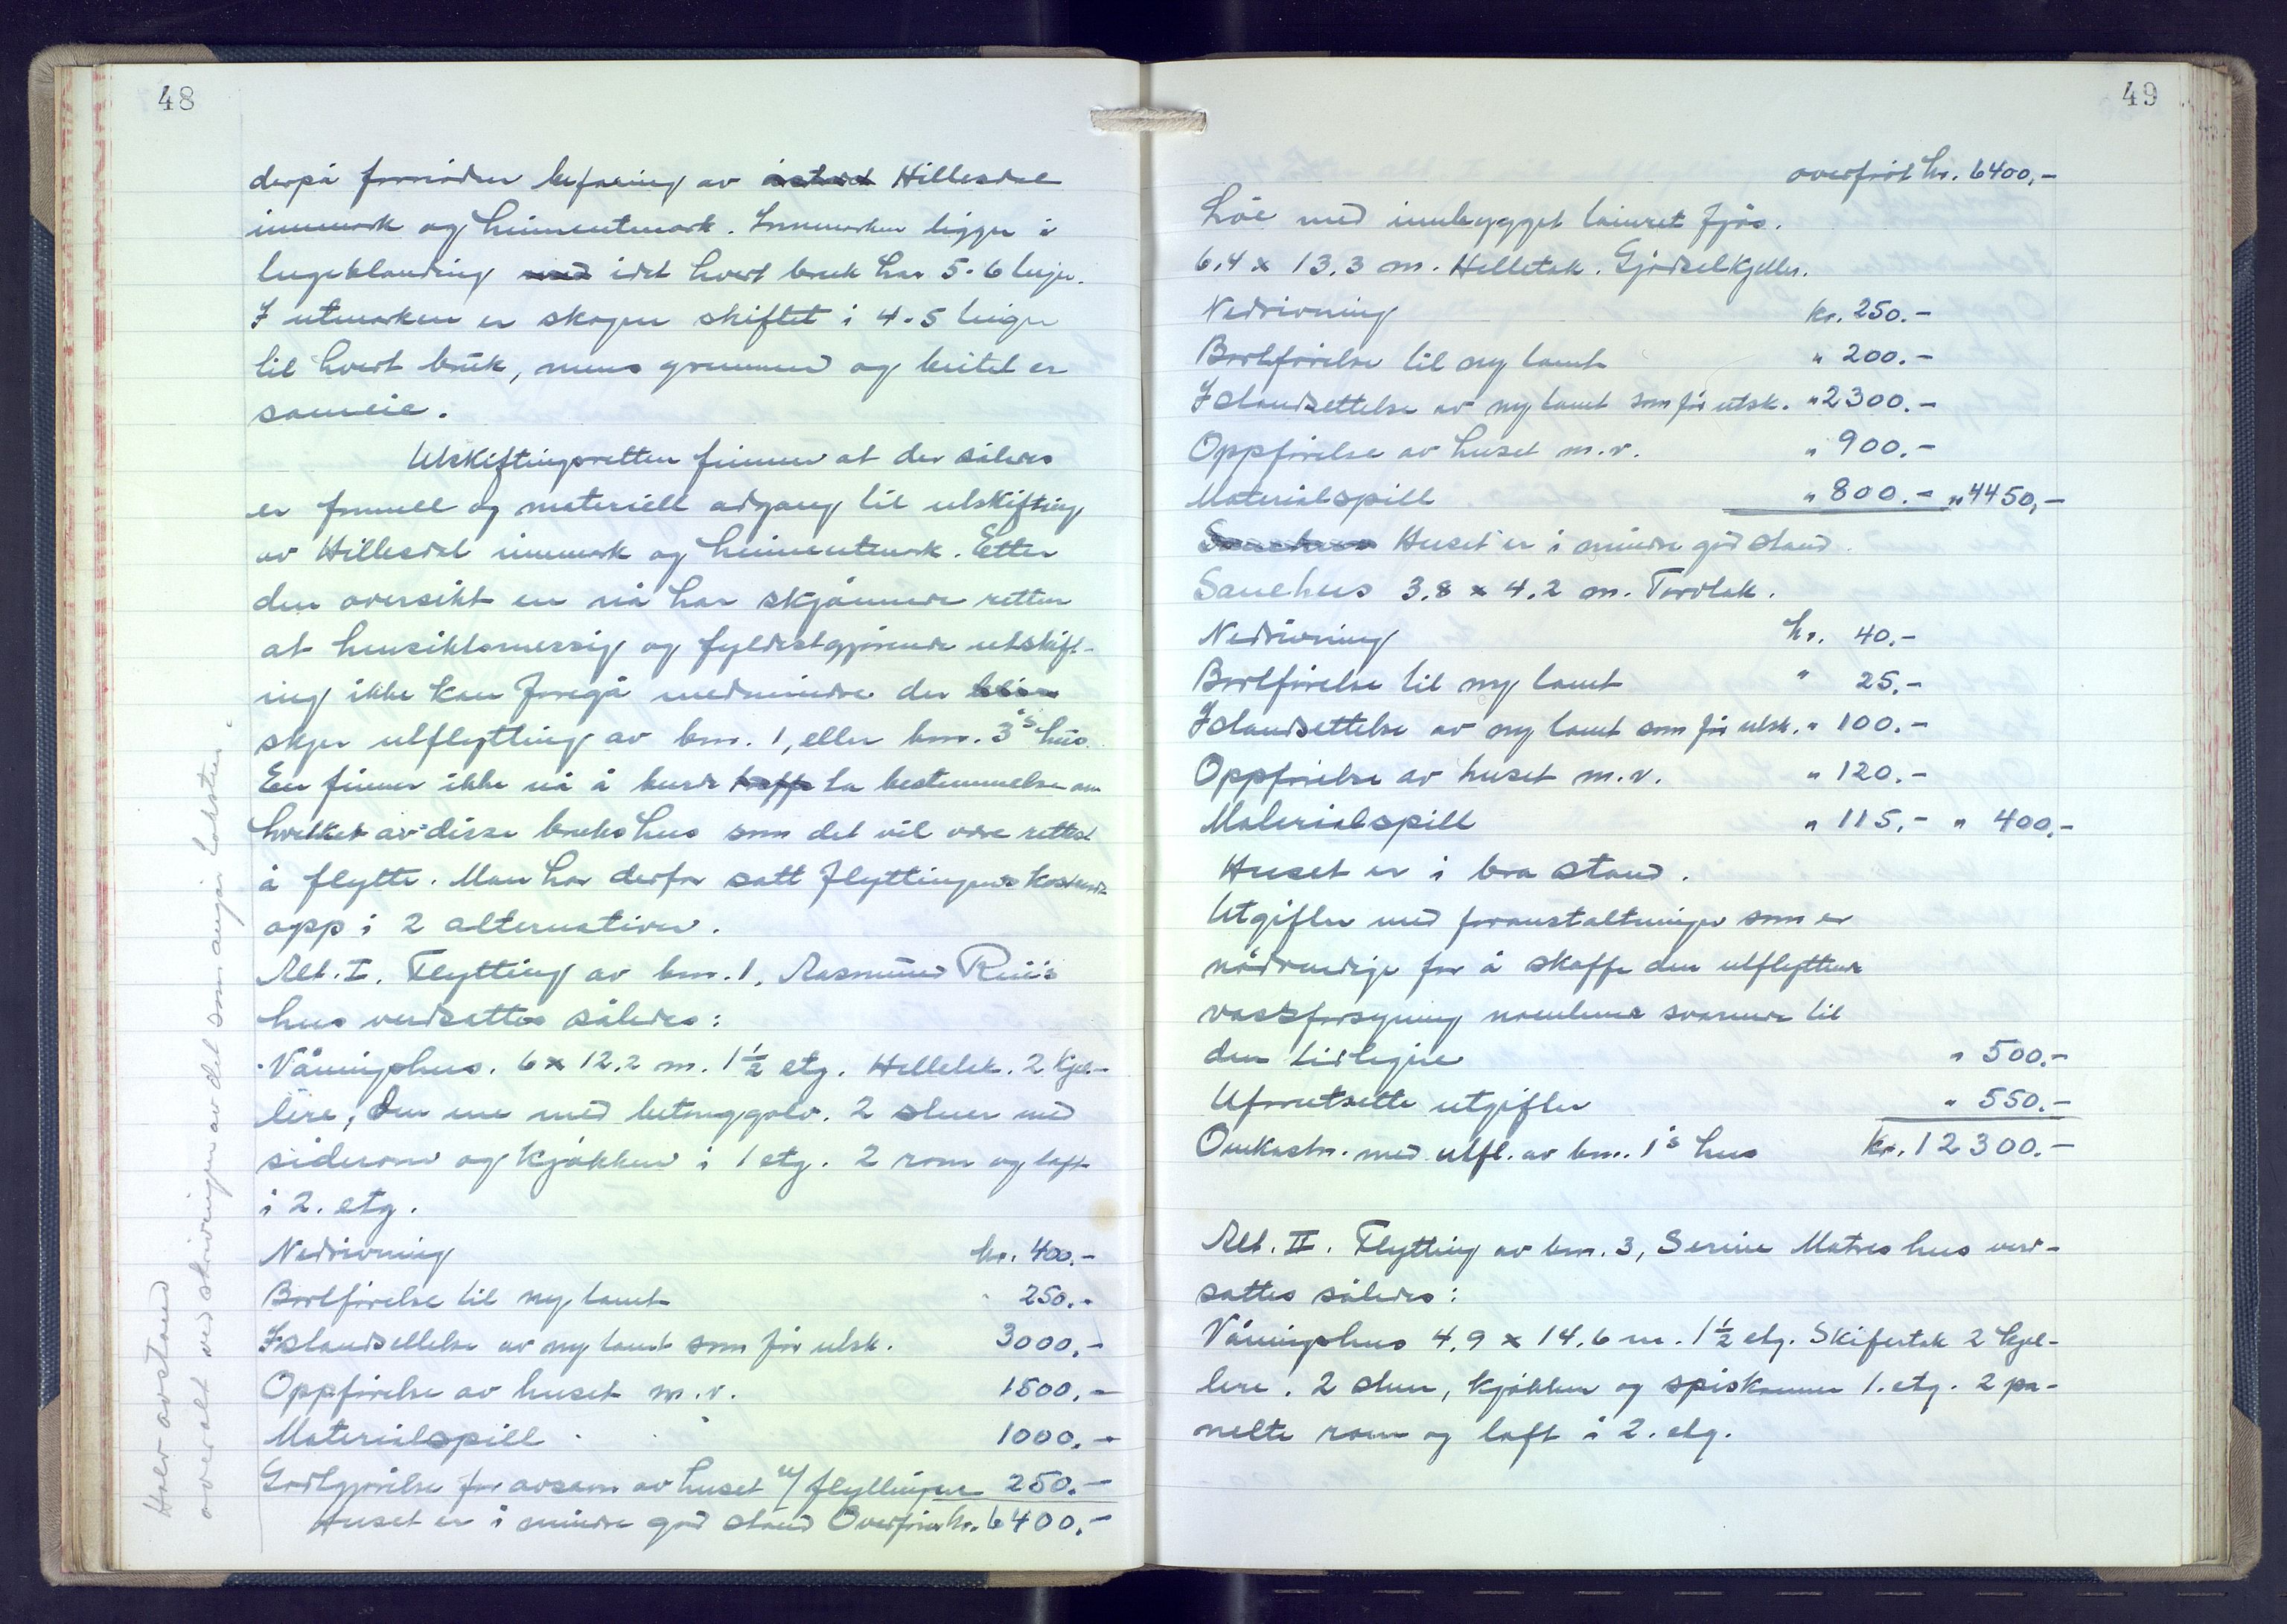 48
derpå fornöden befaring av åsted Hillesdal
innmark og heimeutmark. Innmarken ligger i
teigeblanding med idet hvert bruk har 5-6 teiger.
I utmarken er skogen skiftet i 4-5 teiger
til hvert bruk, mens grunnen og beitet er
sameie.
Utskiftingsretten finner at der således
er formell og materiell adgang til utskifting
av Hillesdal innmark og heimeutmark. Etter
den oversikt en nå har skjönner retten
at hensiktsmessig og fyldestgjörende utskift-
ing ikke kan foregå medmindre der blir
skjer utflytting av bnr. 1, eller bnr. 3's hus.
En finner ikke nå å burde treffe ta bestemmelse om
hvilket av disse bruks hus som det vil være rettest
å flytte. Man har derfor satt flyttingens kostende
opp i 2 alternativer.
Alt. I. Flytting av bnr. 1, Rasmus
hus verdsattes således:
Våningshus. 6 x 12,2 m. 1½ etg. Helletak. 2 kjel-
lere, den ene med betonggolv. 2 stuer med
siderom og kjökken i 1 etg. 2 rom og loft
i 2. etg.
Nedrivning kr. 400.-
Bortförelse til ny tomt " 250.-
Istandsettelse av ny tomt som för utsk. 3000,-
Oppförelse av huset m.v. 1500,-
Materialspill 1000.-
Godtgjörelse for avsavn av huset u/ flyttingen 250.-
Huset er i mindre god stand Overföres kr. 6400,-
Halv avstand
overalt ved skrivingen av det som angår taksten.
49
overfört kr. 6400,-
Löe med innbygget laivret fjös.
6,4 x 13,3 m. Helletak. Gjödselkjeller.
Nedrivning kr. 250.-
Bortförelse til ny tomt " 200.-
Istandsettelse av ny tomt som för utsk. " 2300.-
Oppförelse av huset m.v. " 900.-
Materialspill " 800.- " 4450,-
Sauehus Huset er i mindre god stand.
Sauehus 3,8 x 4,2 m. Torvtak.
Nedrivning kr. 40.-
Bortförelse til ny tomt " 25,-
Istandsettelse av ny tomt som för utsk. " 100.-
Oppförelse av huset m.v. " 120.-
Materialspill " 115,- " 400,-
Huset er i bra stand.
Utgifter med foranstaltninger som er
nödvendige for å skaffe den utflyttende
vassforsyning noenlunde svarende til
den tidligere " 500.-
Uforutsette utgifter " 550.-
Omkostn. med utfl. av bnr. 1's hus kr. 12300.-
Alt. II. Flytting av bnr. 3, Serine Matres hus verd-
sattes således:
Våningshus 4,9 x 14,6 m. 1½ etg. Skifertak 2 kjel-
lere. 2 stuer, kjökken og spiskammer 1. etg. 2 pa-
nelte rom og loft i 2. etg.